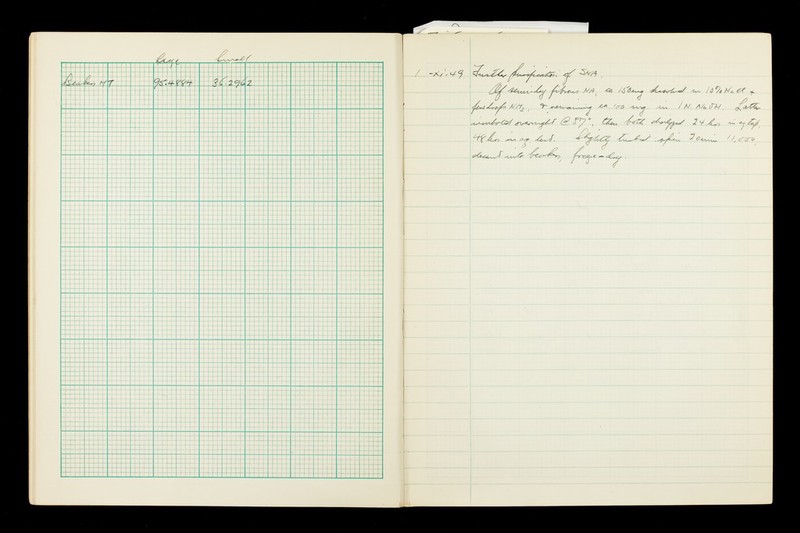 Large Small
Beaker MT 95.4884 36.2962
1-xi-49 Further Purification of SNA.
Of semi-dry fibrous NA, ca 150mg dissolved in 10% NaCl +
few drops NH3, + remaining ca 100 mg in 1N NaOH. Latter
incubated overnight @ 37°, then both dialysed 24 hrs in
48 hrs in dist. Slightly turbid spin 30min 11,000,
decant into beakers, freeze-dry